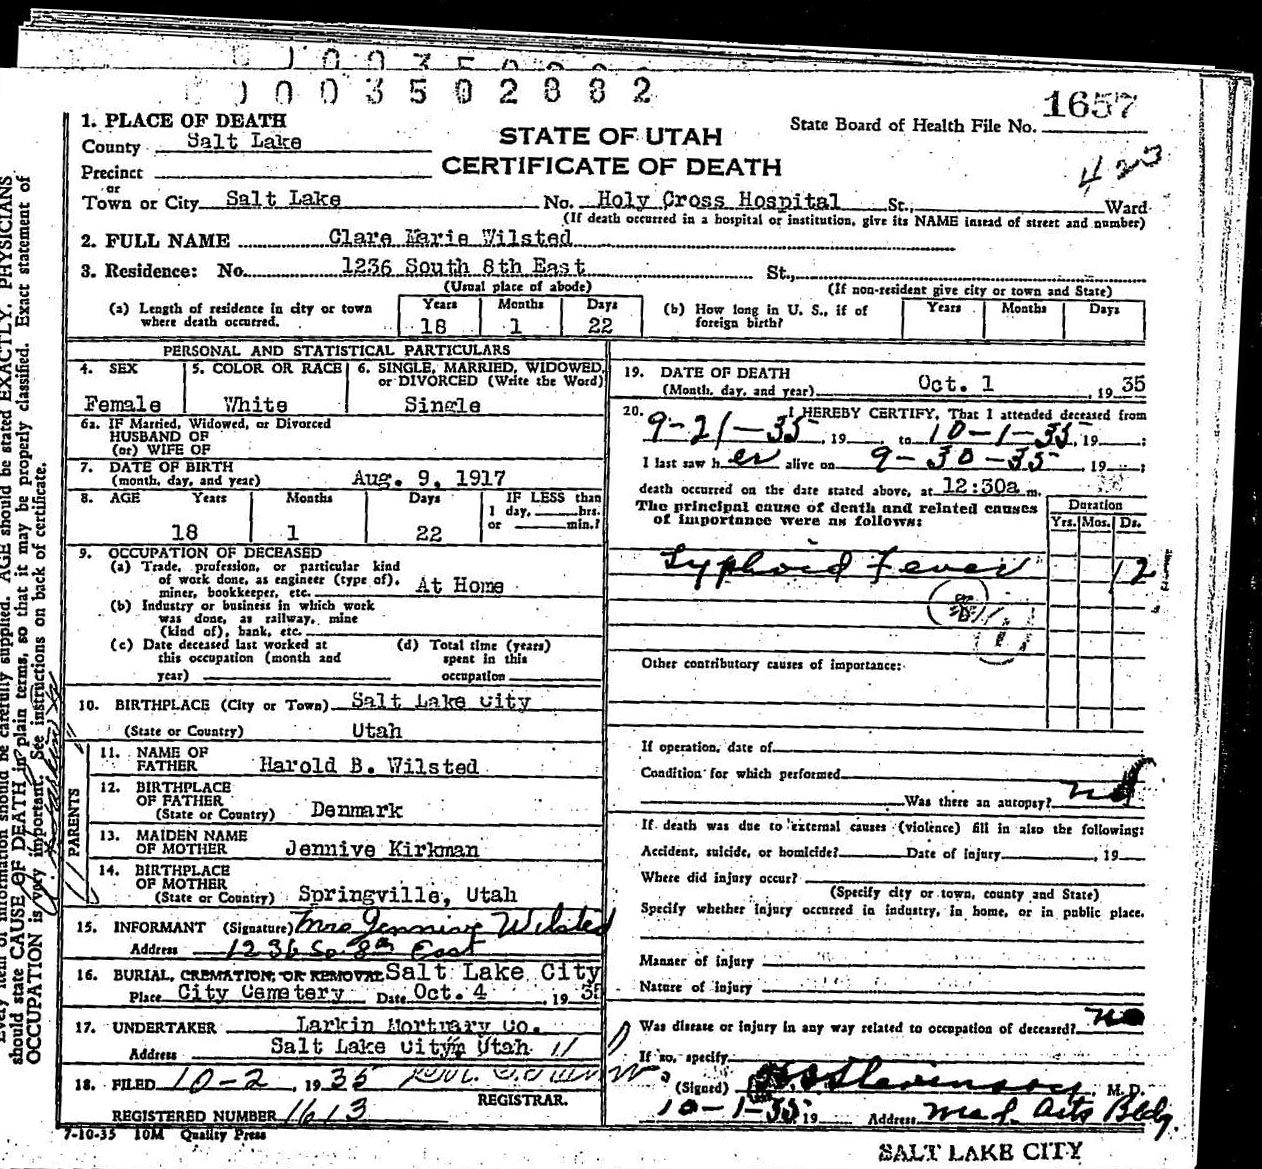 0003502882
1657
1. PLACE OF DEATH
County Salt Lake
STATE OF UTAH
CERTIFICATE OF DEATH
State Board of Health File No.
423
Precinct
or
Town or City Salt Lake No. Holy Cross Hospital St., Ward
(If death occurred in a hospital or institution, give its NAME instead of street and number)
2. FULL NAME Clare Marie Wilsted
3. Residence: No. 1236 South 8th East St.,
(Usual place of abode) (If non-resident give city or town and State)
(a) Length of residence in city or town where death occurred. Years 18 Months 1 Days 22
(b) How long in U. S., if of foreign birth? Years Months Days
PERSONAL AND STATISTICAL PARTICULARS
4. SEX Female
5. COLOR OR RACE White
6. SINGLE, MARRIED, WIDOWED, or DIVORCED (Write the Word) Single
6a. IF Married, Widowed, or Divorced
HUSBAND OF
(or) WIFE OF
7. DATE OF BIRTH
(month, day, and year) Aug. 9, 1917
8. AGE Years 18 Months 1 Days 22
IF LESS than
1 day, hrs.
or min.?
9. OCCUPATION OF DECEASED
(a) Trade, profession, or particular kind
of work done, as engineer (type of),
miner, bookkeeper, etc. At Home
(b) Industry or business in which work
was done, as railway, mine
(kind of), bank, etc.
(c) Date deceased last worked at
this occupation (month and
year)
(d) Total time (years)
spent in this
occupation
10. BIRTHPLACE (City or Town) Salt Lake City
(State or Country) Utah
PARENTS
11. NAME OF
FATHER Harold B. Wilsted
12. BIRTHPLACE
OF FATHER
(State or Country) Denmark
13. MAIDEN NAME
OF MOTHER Jennive Kirkman
14. BIRTHPLACE
OF MOTHER
(State or Country) Springville, Utah
15. INFORMANT (Signature) Mrs Jennive Wilsted
Address 1236 So 8th East
16. BURIAL, CREMATION, OR REMOVAL Salt Lake City
Place City Cemetery Date Oct. 4, 1935
17. UNDERTAKER Larkin Mortuary Co.
Address Salt Lake City, Utah
18. FILED 10-2, 1935
REGISTRAR.
REGISTERED NUMBER 1613
7-10-35 10M Quality Press
19. DATE OF DEATH
(Month, day, and year) Oct. 1 1935
20. I HEREBY CERTIFY, That I attended deceased from
9-21-35, 19 to 10-1-35, 19 ;
I last saw her alive on 9-30-35, 19 ;
death occurred on the date stated above, at 12:30a m.
The principal cause of death and related causes
of importance were as follows:
Duration
Yrs. Mos. Ds.
Typhoid Fever 12
Other contributory causes of importance:
If operation, date of
Condition for which performed
Was there an autopsy? no
If death was due to external causes (violence) fill in also the following:
Accident, suicide, or homicide? Date of injury 19
Where did injury occur?
(Specify city or town, county and State)
Specify whether injury occurred in industry, in home, or in public place.
Manner of injury
Nature of injury
Was disease or injury in any way related to occupation of deceased? no
If so, specify
(Signed) Stevenson, M. D.
10-1-35 19 Address Med. Arts Bldg.
SALT LAKE CITY
should state CAUSE OF DEATH in plain terms, so that it may be properly classified. Exact statement of
OCCUPATION is very important. See instructions on back of certificate.